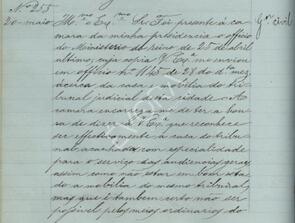 Nº 255
20 maio Ill.mo e Ex.mo Sr. Foi presente á ca- Gov. civil
mara da minha presidencia o officio
do Ministerio do reino de 25 de abril
ultimo, cuja copia V. Ex.ª me enviou
em officio nº 1145 de 28 do d.to mez,
ácerca da casa e mobilia do tri-
bunal judicial d'esta cidade. A ca-
mara encarrega-me de ter a honra
de dizer a V. Ex.ª que reconhece
ser effectivamente a casa do tribu-
nal acanhada com especialidade
para o serviço das audiencias geraes
assim como não estar em bom esta-
do a mobilia do mesmo tribunal,
mas que é tambem certo não ser
possivel pelos meios ordinarios do